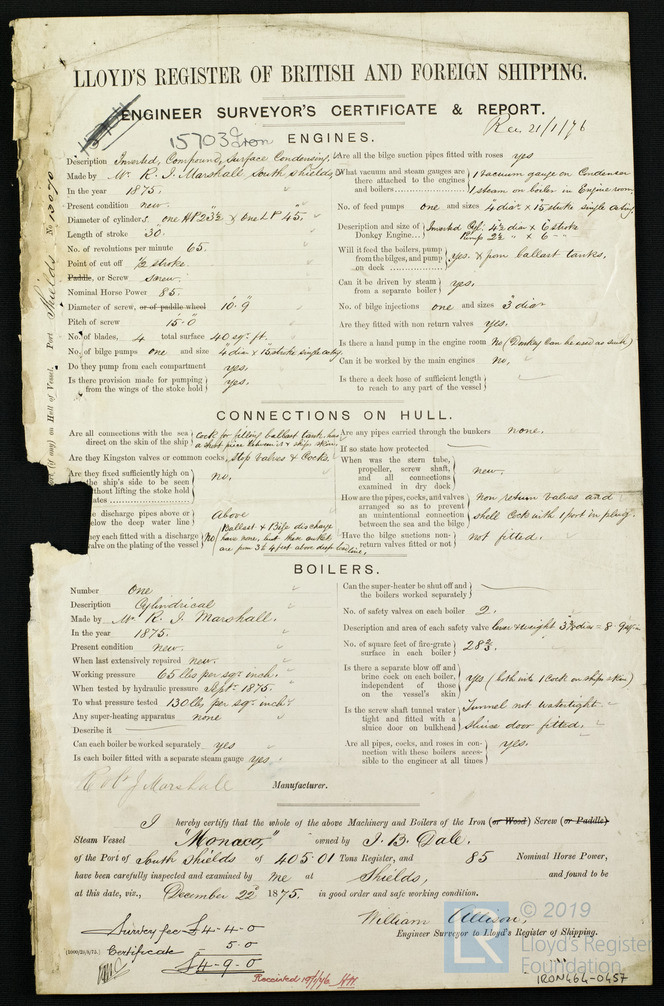 LLOYD'S REGISTER OF BRITISH AND FOREIGN SHIPPING.
ENGINEER SURVEYOR'S CERTIFICATE & REPORT.
Rec 21/1/76
15703 Iron
ENGINES.
Description Inverted, Compound, Surface Condensing.
Made by Mr R. J. Marshall, South Shields,
In the year 1875.
Present condition new.
Diameter of cylinders. one HP 23½" & one LP 45."
Length of stroke 30."
No. of revolutions per minute 65.
Point of cut off ½ stroke.
Paddle, or Screw Screw.
Nominal Horse Power 85.
Diameter of screw, or of paddle wheel 10'. 9"
Pitch of screw 15'. 0"
No. of blades, 4 total surface 40 sq. ft.
No. of bilge pumps one and size 4" diar × 15" stroke single acting
Do they pump from each compartment yes.
Is there provision made for pumping from the wings of the stoke hold yes.
Are all the bilge suction pipes fitted with roses yes
What vacuum and steam gauges are there attached to the engines and boilers 1 vacuum gauge on Condenser
1 steam on boiler in Engine room
No. of feed pumps one and sizes 4" diar. × 15" stroke single acting
Description and size of Donkey Engine Inverted Cyl: 4½ dia × 6" stroke
Pump 2½ " × 6 "
Will it feed the boilers, pump from the bilges, and pump on deck yes. & from ballast tanks,
Can it be driven by steam from a separate boiler yes,
No. of bilge injections one and sizes 3" diar
Are they fitted with non return valves yes.
Is there a hand pump in the engine room No (Donkey can be used as such)
Can it be worked by the main engines no,
Is there a deck hose of sufficient length to reach to any part of the vessel
Port Shields No 13070
Port (if any) on Hull of Vessel.
CONNECTIONS ON HULL.
Are all connections with the sea direct on the skin of the ship Cock for filling ballast tank has
a short piece between it & ship's skin
Are they Kingston valves or common cocks, Stop Valves & Cocks.
Are they fixed sufficiently high on the ship's side to be seen without lifting the stoke hold plates no,
discharge pipes above or below the deep water line Above
they each fitted with a discharge valve on the plating of the vessel No Ballast & Bilge discharge
have none, but these outlets
are from 3½ 4 feet above deep load line,
Are any pipes carried through the bunkers none.
If so state how protected
When was the stern tube, propeller, screw shaft, and all connections examined in dry dock new.
How are the pipes, cocks, and valves arranged so as to prevent unintentional connection between the sea and the bilge non return Valves and
shell Cock with 1 port in plug.
Have the bilge suctions non-return valves fitted or not not fitted.
BOILERS.
Number one
Description Cylindrical
Made by Mr R. J. Marshall.
In the year 1875.
Present condition new.
When last extensively repaired new.
Working pressure 65 lbs per sqr inch.
When tested by hydraulic pressure Sept. 1875.
To what pressure tested 130 lbs, per sq. inch.
Any super-heating apparatus none
Describe it
Can each boiler be worked separately yes
Is each boiler fitted with a separate steam gauge yes,
Can the super-heater be shut off and the boilers worked separately
No. of safety valves on each boiler 2.
Description and area of each safety valve lever & weight
No. of square feet of fire-grate surface in each boiler 28⅔.
Is there a separate blow off and brine cock on each boiler, independent of those on the vessel's skin yes (both into 1 Cock on ship's skin)
Is the screw shaft tunnel water tight and fitted with a sluice door on bulkhead Tunnel not watertight.
Sluice door fitted.
Are all pipes, cocks, and roses in connection with these boilers accessible to the engineer at all times yes.
Marshall Manufacturer.
I hereby certify that the whole of the above Machinery and Boilers of the Iron (or Wood) Screw (or Paddle)
Steam Vessel "Monaco," owned by J. B. Dale.
of the Port of South Shields of 405.01 Tons Register, and 85 Nominal Horse Power,
have been carefully inspected and examined by me at Shields, and found to be
at this date, viz., December 22d 1875. in good order and safe working condition.
William Allison,
Engineer Surveyor to Lloyd's Register of Shipping.
Survey fee £4-4-0
(1000/20/8/75.) Certificate 5-0
£4-9-0
Received 19/1/76
© 2019
LR
Lloyd's Register
Foundation
IRON464-0457